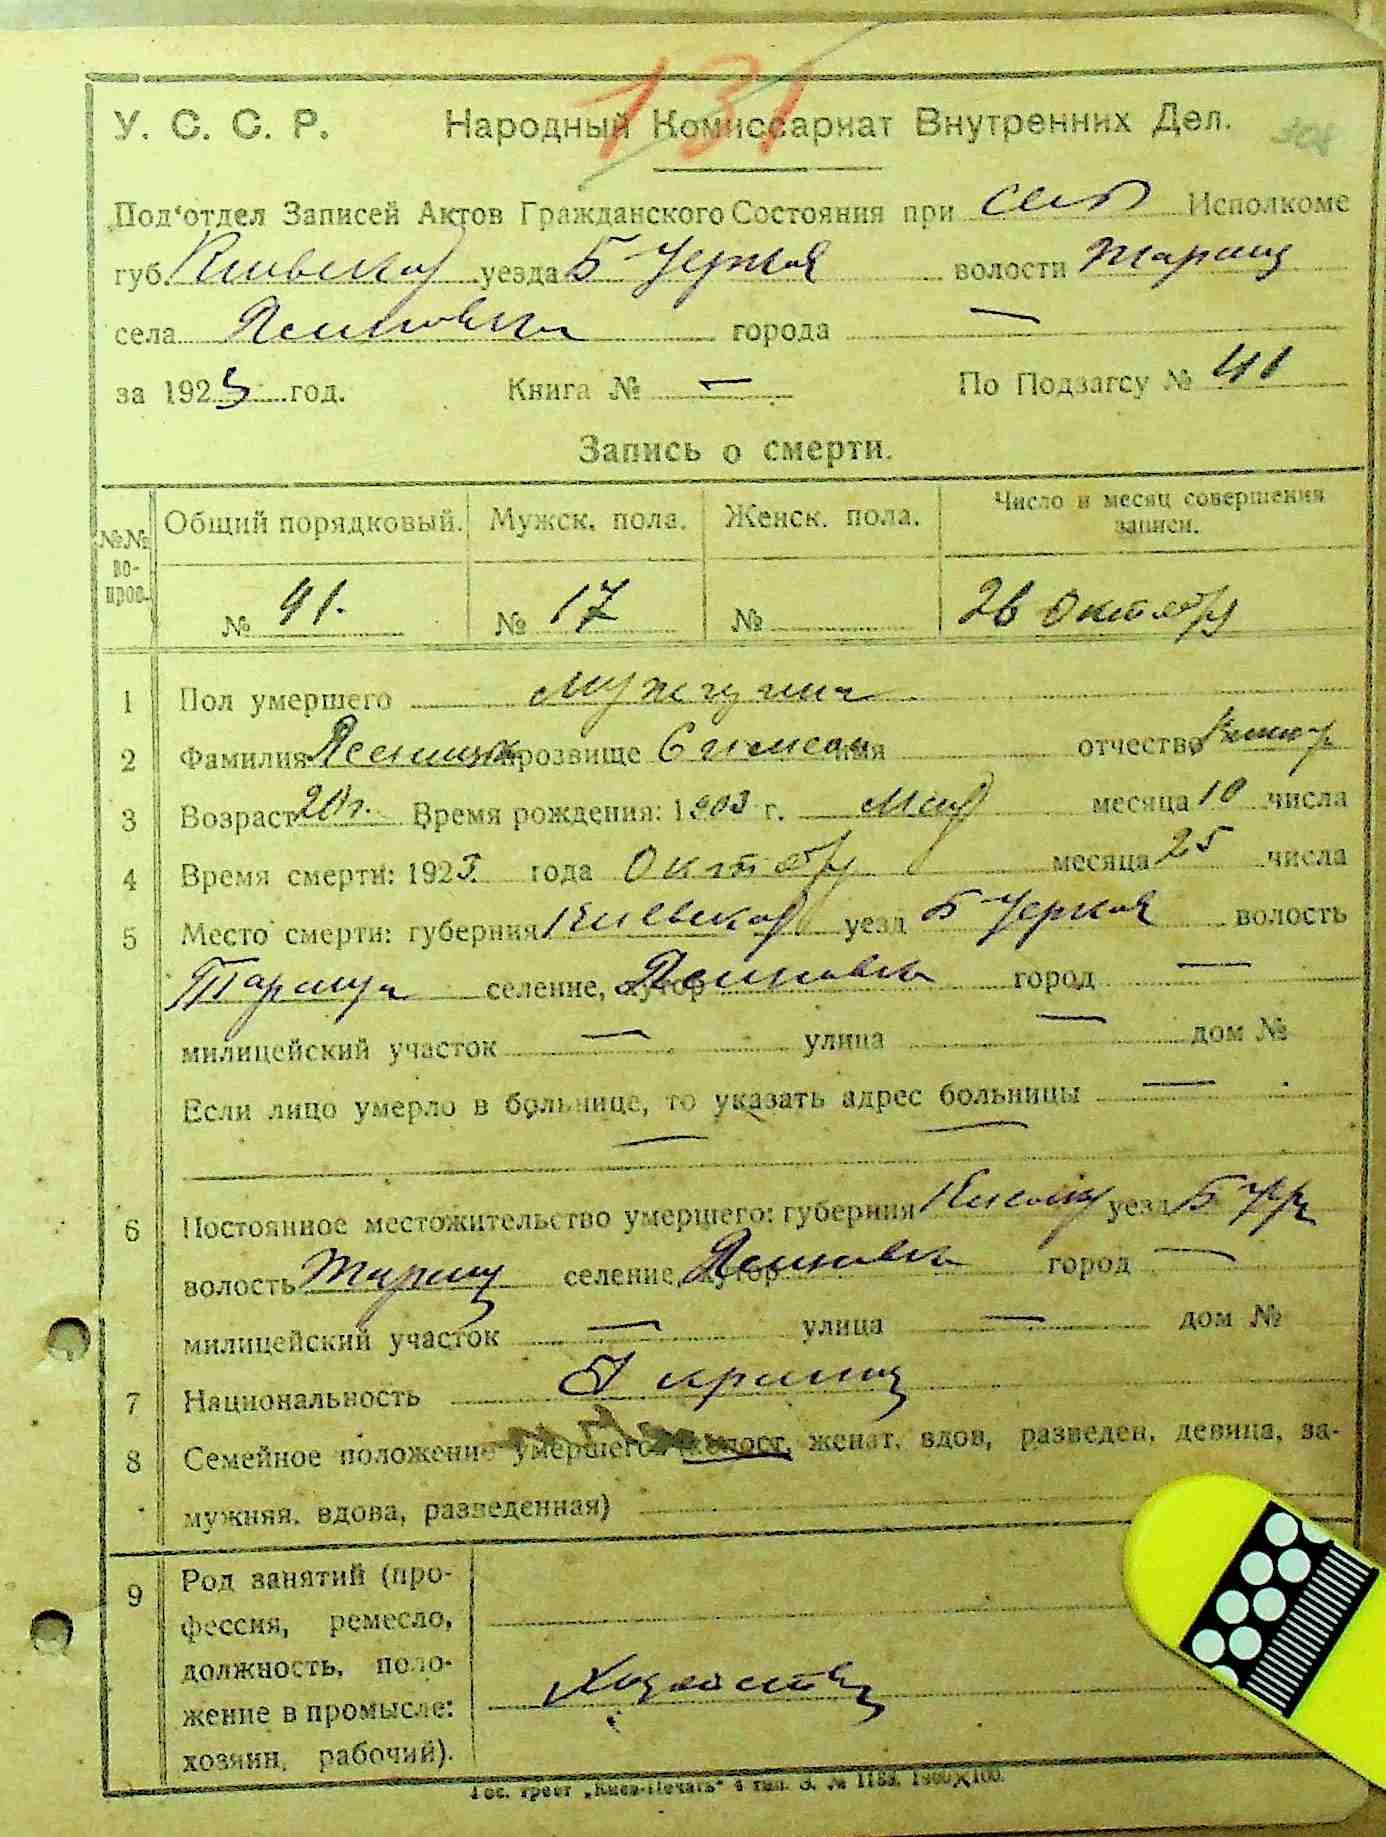 131
У. С. С. Р. Народный Комиссариат Внутренних Дел.
Под'отдел Записей Актов Гражданского Состояния при сель Исполкоме
губ. Киевской уезда Б Церков волости Таращ
села города —
за 1923 год. Книга № — По Подзагсу № 41
Запись о смерти.
№№ вопров. Общий порядковый. Мужск. пола. Женск. пола. Число и месяц совершения записи.
№ 41. № 17 № 26 Октября
1 Пол умершего мужчина
2 Фамилия прозвище имя отчество
3 Возраст 20 г. Время рождения: 1903 г. Мая месяца 10 числа
4 Время смерти: 1923 года Октября месяца 25 числа
5 Место смерти: губерния Киевская уезд Б Церков волость
Тараща селение, хутор город —
милицейский участок — улица — дом №
Если лицо умерло в больнице, то указать адрес больницы —
— —
6 Постоянное местожительство умершего: губерния уезд Б Цер
волость Таращ селение, хутор город —
милицейский участок — улица — дом №
7 Национальность Украинец
8 Семейное положение умершего (холост, женат, вдов, разведен, девица, за-
мужняя, вдова, разведенная)
9 Род занятий (про-
фессия, ремесло,
должность, поло-
жение в промысле:
хозяин, рабочий).
Гос. трест „Киев-Печать“ 4 тип. З. № 1183. 1900Х100.